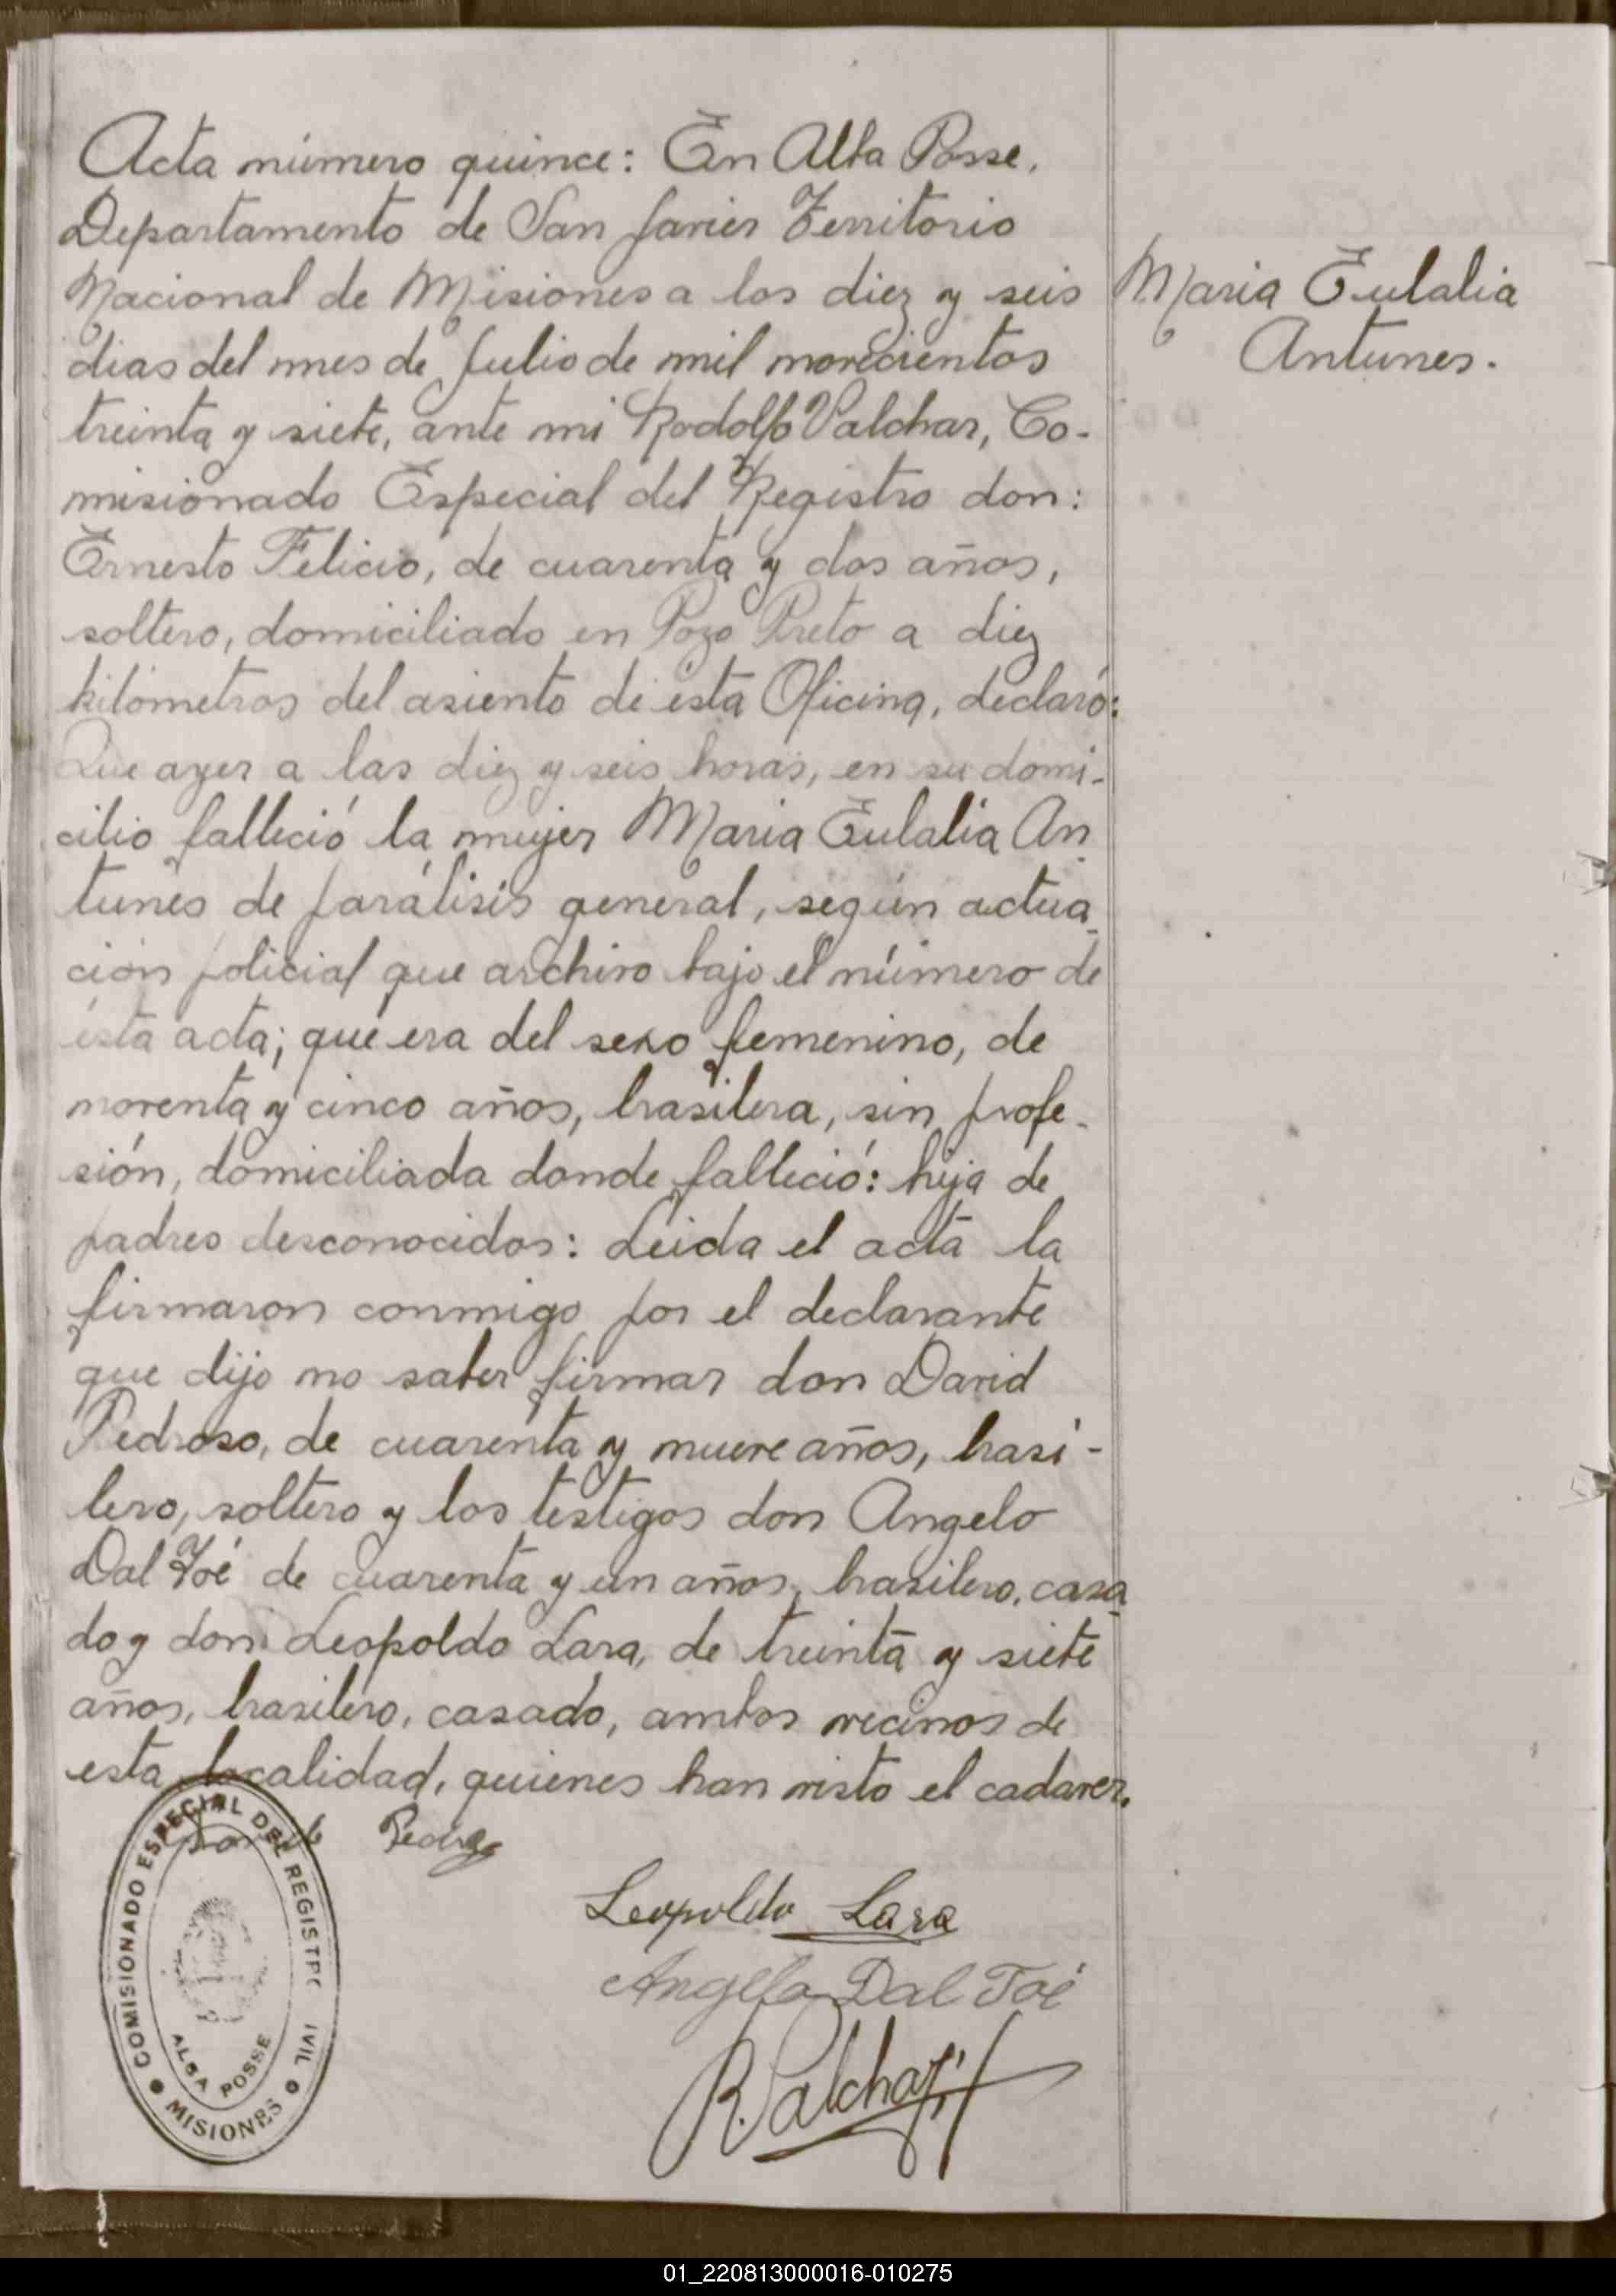 Acta número quince: En Alba Posse,
Departamento de San Javier Territorio
Nacional de Misiones a los diez y seis
dias del mes de Julio de mil novecientos
treinta y siete, ante mi Rodolfo Valchar, Co-
misionado Especial del Registro don:
Ernesto Felicio, de cuarenta y dos años,
soltero, domiciliado en Pozo Preto a diez
kilómetros del asiento de esta Oficina, declaró:
Que ayer a las diez y seis horas, en su domi-
cilio falleció la mujer Maria Eulalia An
tunes de parálisis general, según actua_
ción policial que archivo bajo el número de
ésta acta; que era del sexo femenino, de
noventa y cinco años, brasilera, sin profe-
sión, domiciliada donde falleció: hija de
padres desconocidos: Leida el acta la
firmaron conmigo por el declarante
que dijo no saber firmar don David
Pedroso, de cuarenta y nueve años, brasi-
lero, soltero y los testigos don Angelo
Dal Toé de cuarenta y un años, brasilero, casa_
do y don Leopoldo Lara, de treinta y siete
años, brasilero, casado, ambos vecinos de
esta localidad, quienes han visto el cadaver.
Maria Eulalia
Antunes.
Leopoldo Lara
Angello Dal Toé
R. Valchar
COMISIONADO ESPECIAL DEL REGISTRO IVIL
ALBA POSSE
MISIONES
01_220813000016-010275